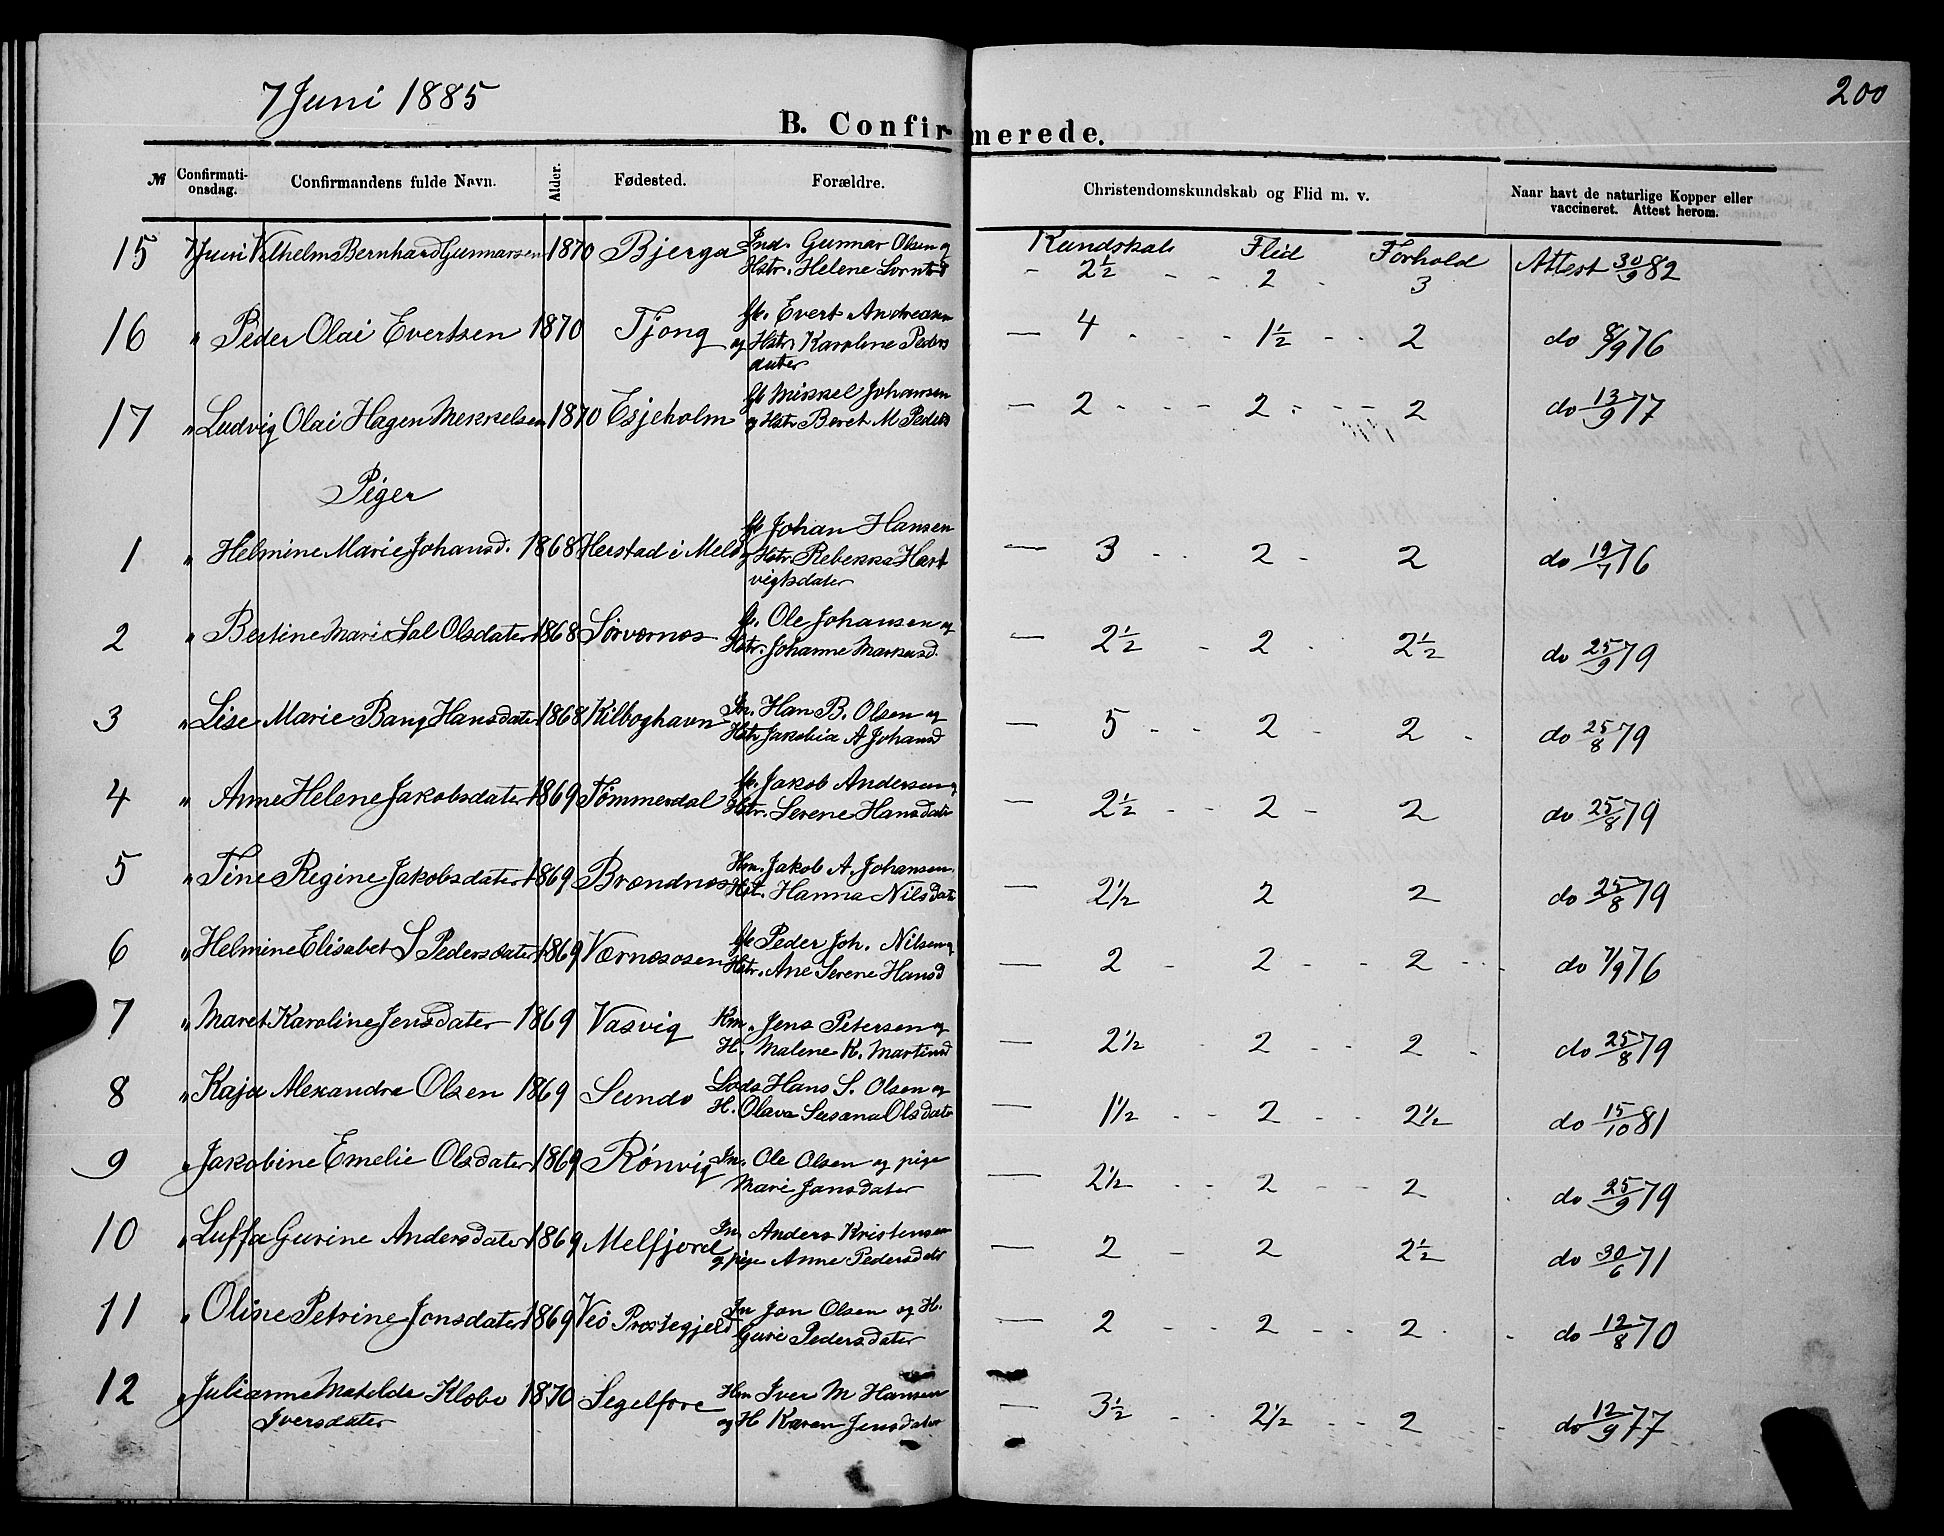 7 Juni 1885
200
B. Confirmerede.
№ Confirmationsdag. Confirmandens fulde Navn. Alder. Fødested. Forældre. Christendomskundskab og Flid m. v. Naar havt de naturlige Kopper eller vaccineret. Attest herom.
Kundskab Flid Forhold
15 7 Juni Vilhelm Bernhard Gunnarsen 1870 Bjerga Ind. Gunnar Olsen og Hstr. Helene Lorntsd - 2½ - - 2 - 3 Attest 30/9 82
16 " Peder Olai Evertsen 1870 Tjong Gb. Evert Andreasen og Hstr Karoline Pedersdater — 4 - - - 1½ - - 2 do 8/9 76
17 " Ludvig Olai Hagen Mekkelsen 1870 Esjeholm Gb Mikkel Johansen og Hstr Beret M Peders — 2 - - - 2 - - - 2 do 13/9 77
Piger
1 " Helmine Marie Johansd. 1868 Herstad i Meld Gb Johan Hansen og Hstr Rebekka Hartvigsdater — 3 - - 2 - 2 do 19/7 76
2 " Bertine Marie Sal Olsdater 1868 Sørværnes Gb. Ole Johansen og Hstr. Johanne Markusd. — 2½ - 2 - 2½ do 25/9 79
3 " Lise Marie Bang Hansdater 1868 Kilboghavn In. Han B. Olsen og Hstr Jakobia A Johansd — 5 - - 2 - 2 - do 25/8 79
4 " Anne Helene Jakobsdater 1869 Tømmerdal Gb. Jakob Andersen og Hstr. Serene Hansdate — 2½ - - 2 - 2 do 25/8 79
5 " Tine Regine Jakobsdater 1869 Brændnes Hm. Jakob A. Johansen, Hst. Hanna Nilsdate — 2½ 2 2 do 25/8 79
6 " Helmine Elisabet S Pedersdater 1869 Værnesosen Gb Peder Joh. Nilsen og Hstr. Ane Serene Hansd — 2 - 2 - - 2 - - do 7/9 76
7 " Maret Karoline Jensdater 1869 Vasvig Hm. Jens Petersen og H. Malene K. Martinsd — 2½ - 2 - - 2 - do 25/8 79
8 " Kaja Alexandra Olsen 1869 Sundø Lods Hans S. Olsen og H. Olava Susana Olsdate — 1½ - - 2 - - 2½ do 15/10 81
9 " Jakobine Emelie Olsdater 1869 Rønvig In. Ole Olsen og pige Mari Jansdater — 2½ - - 2 - - 2 - do 25/9 79
10 " Luffa Gurine Andersdater 1869 Melfjord In Anders Kristensen og pige Anne Pedersdatr — 2 - 2 2½ do 30/6 71
11 " Oline Petrine Jonsdater 1869 Veø Prestegjeld In Jon Olsen og H. Guri Pedersdater — 2 - - 2 - - 2 - - do 12/8 70
12 " Julianne Matelde Klobo Iversdater 1870 Segelfore Hm Iver M Hansen og H Karen Jensdater — 3½ - - 2½ - - 2 - do 12/9 77